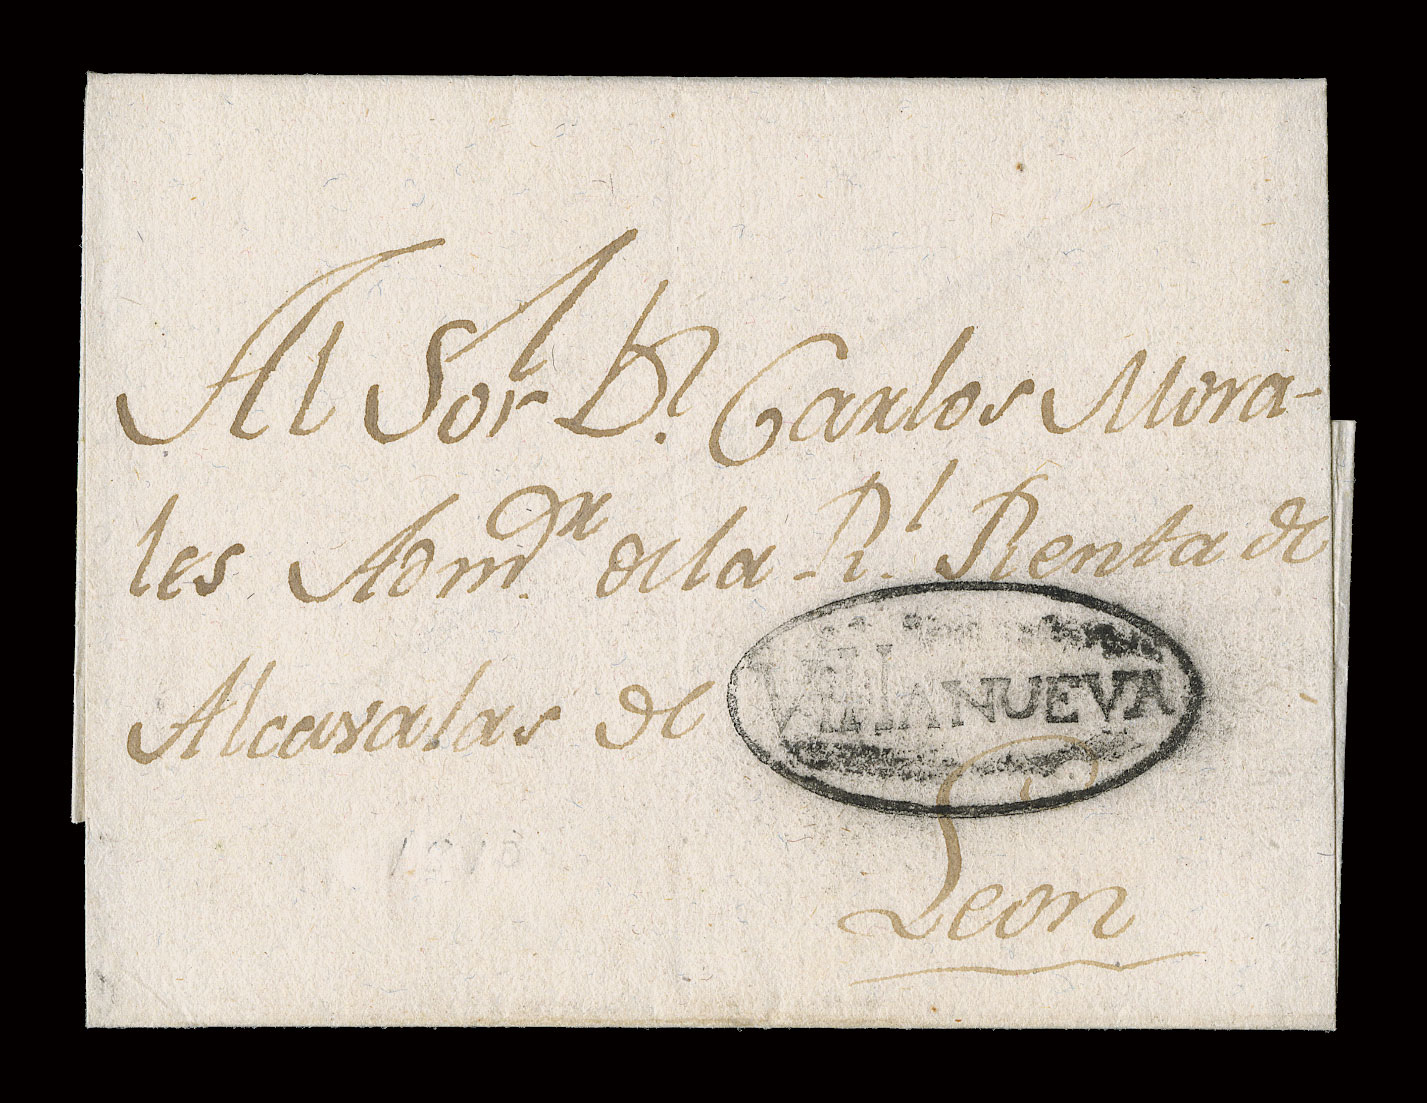 Al Sor. Dn. Carlos Mora-
les Admor. de la Rl. Renta de
Alcavalas de
VILLANUEVA
Leon